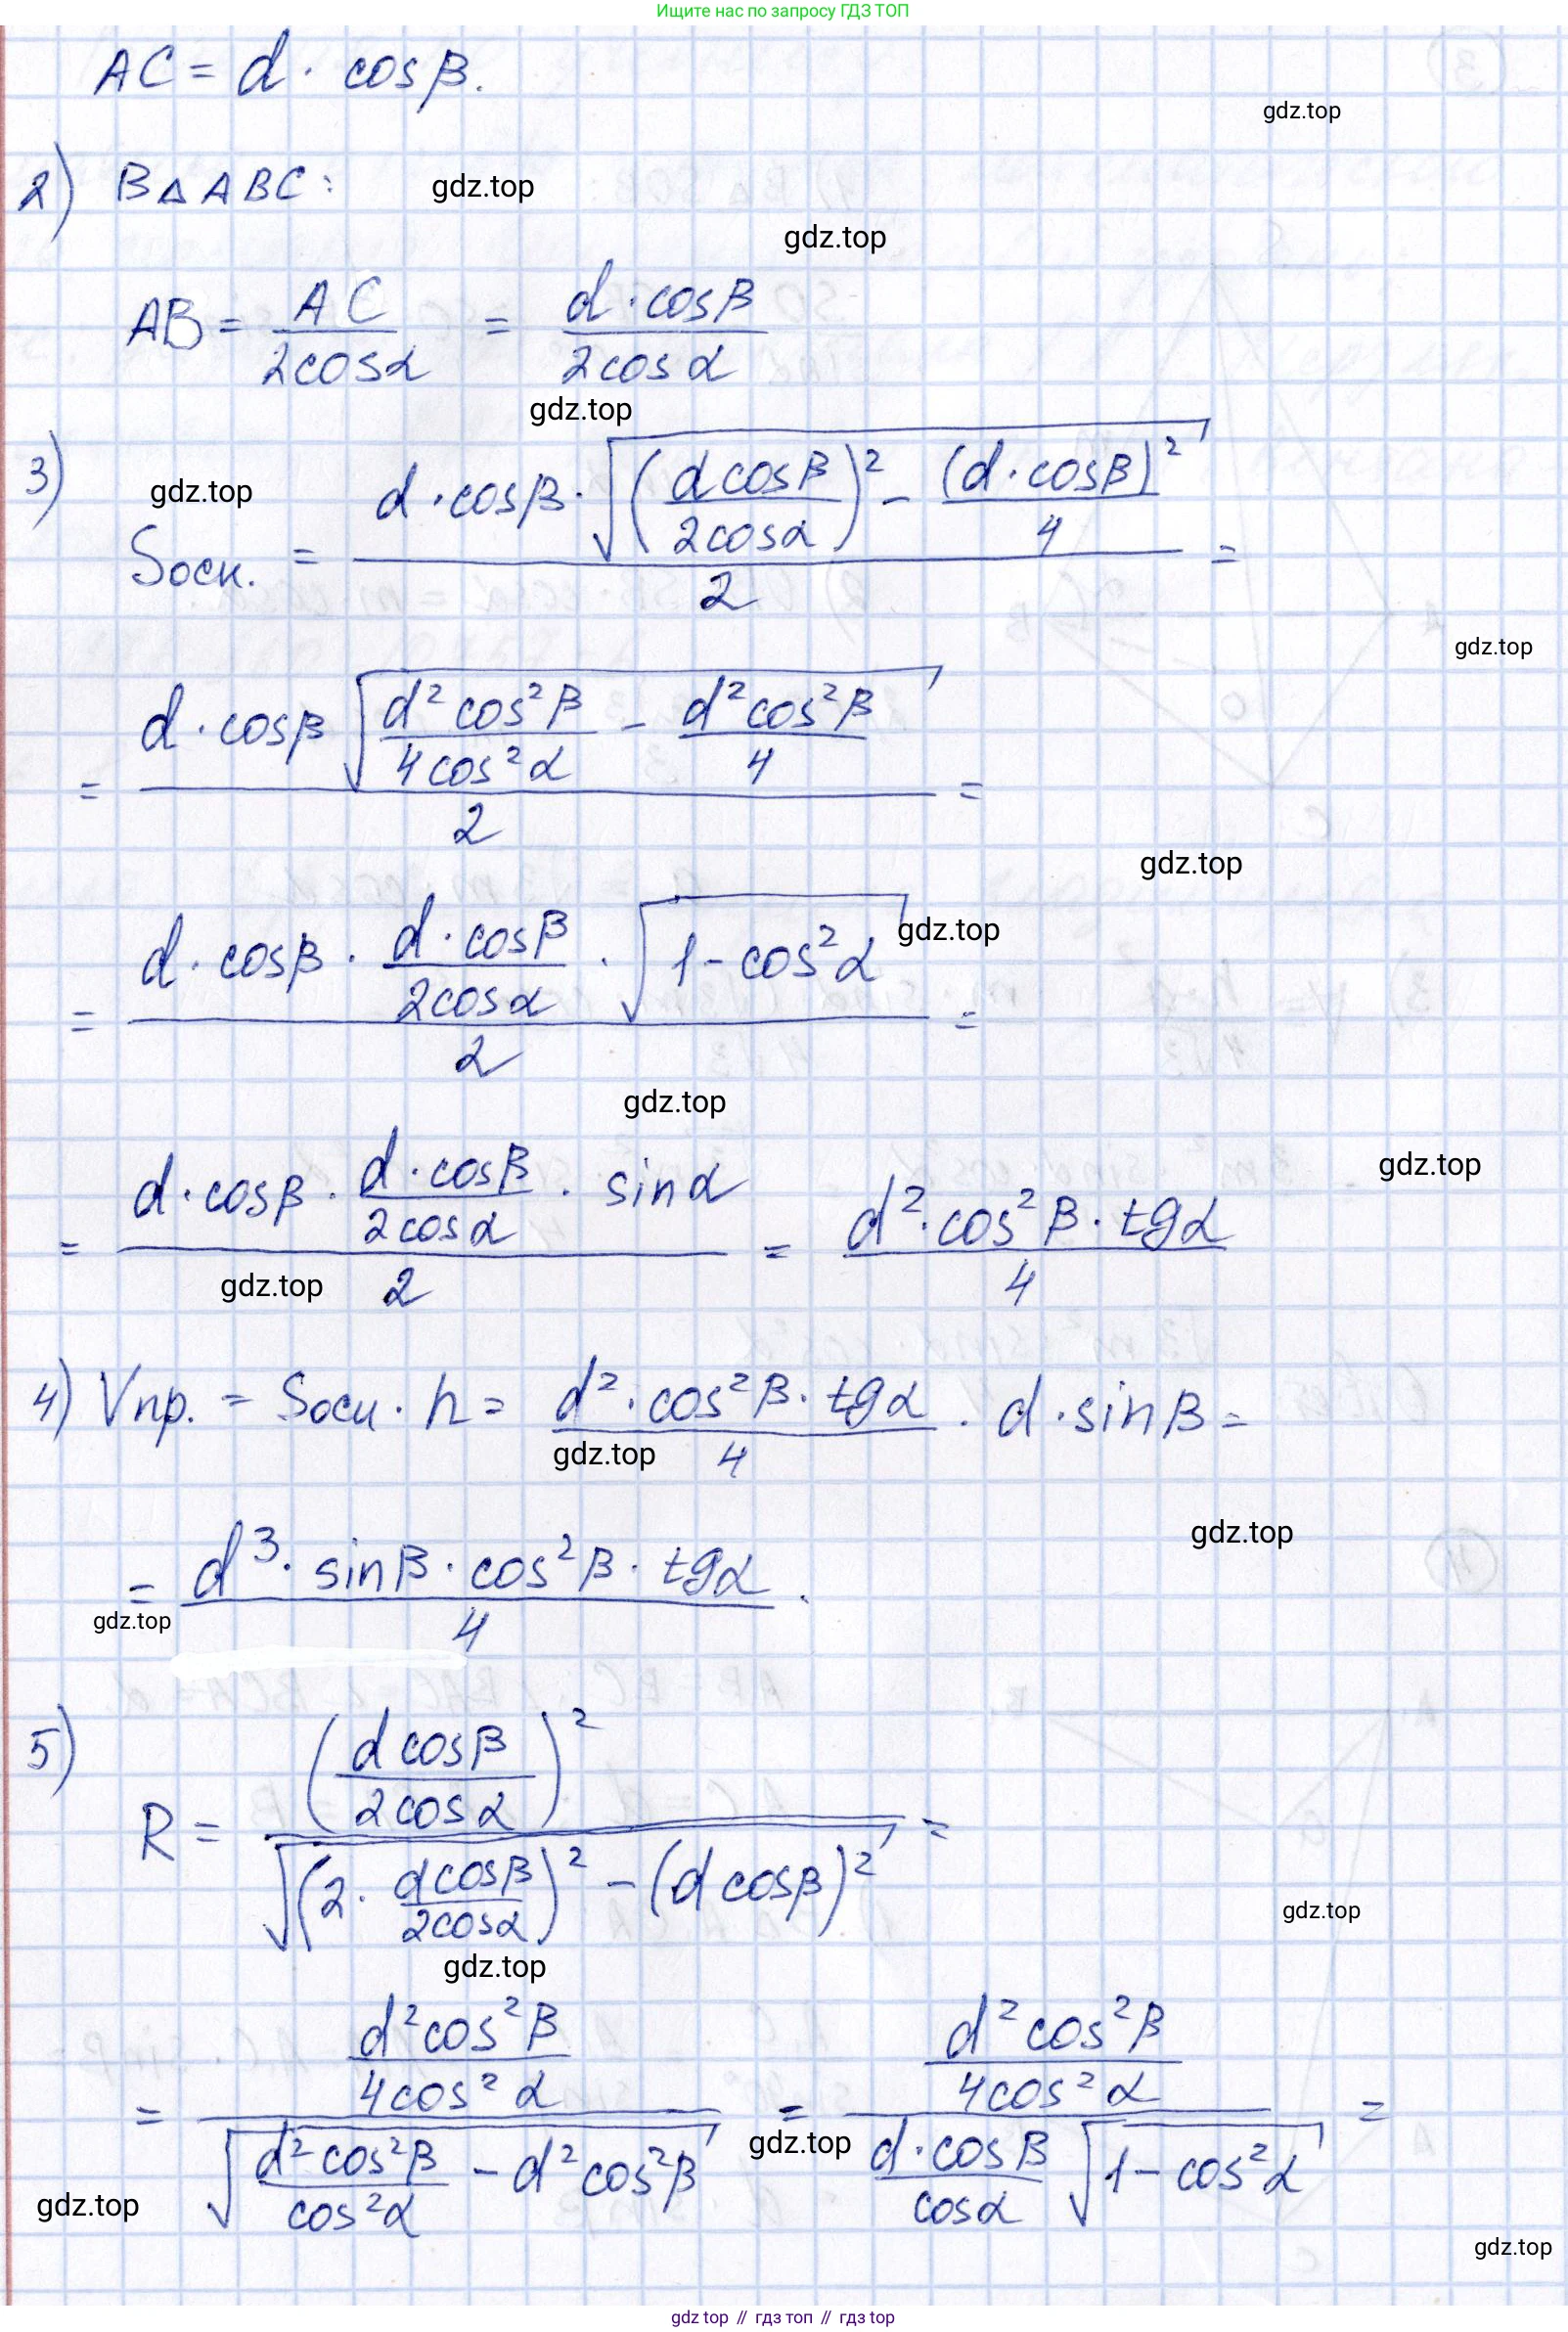 Ищите нас по запросу ГДЗ ТОП
AC = d · cosβ.
gdz.top
2) В △ ABC:
gdz.top
gdz.top
AB = AC / 2cosα = d · cosβ / 2cosα
gdz.top
3) Sосн. = d · cosβ · √((d cosβ / 2cosα)² − (d · cosβ)² / 4) / 2 =
gdz.top
gdz.top
= d · cosβ √(d² cos²β / 4cos²α − d² cos²β / 4) / 2 =
gdz.top
= d · cosβ · d · cosβ / 2cosα · √(1 − cos²α) / 2 =
gdz.top
gdz.top
= d · cosβ · d · cosβ / 2cosα · sinα / 2 = d² · cos²β · tgα / 4
gdz.top
gdz.top
4) Vпр. = Sосн · h = d² · cos²β · tgα / 4 · d · sinβ =
gdz.top
gdz.top
= d³ · sinβ · cos²β · tgα / 4.
gdz.top
5) R = (d cosβ / 2cosα)² / √((2 · d cosβ / 2cosα)² − (d cosβ)²) =
gdz.top
gdz.top
= d² cos²β / 4cos²α / √(d² cos²β / cos²α − d² cos²β) = d² cos²β / 4cos²α / d · cosβ / cosα √(1 − cos²α) =
gdz.top
gdz.top
gdz.top
gdz top // гдз топ // гдз top